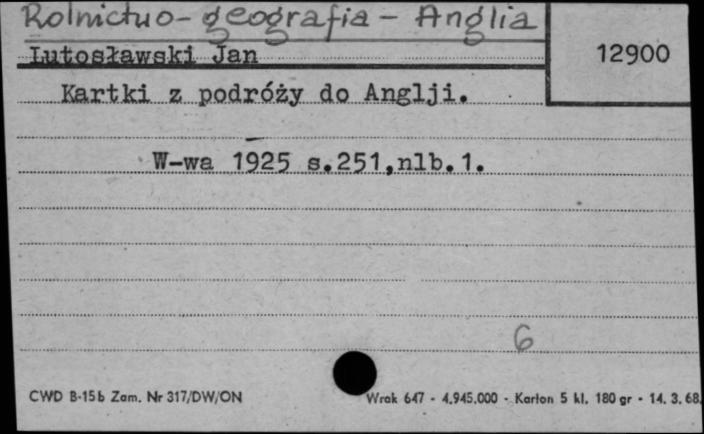 Rolnictwo - geografia - Anglia
Lutosławski Jan
12900
Kartki z podróży do Anglji.
W-wa 1925 s.251,nlb.1.
6
CWD B-15b Zam. Nr 317/DW/ON
Wrak 647 - 4.945.000 - Karton 5 kl. 180 gr - 14. 3. 68.